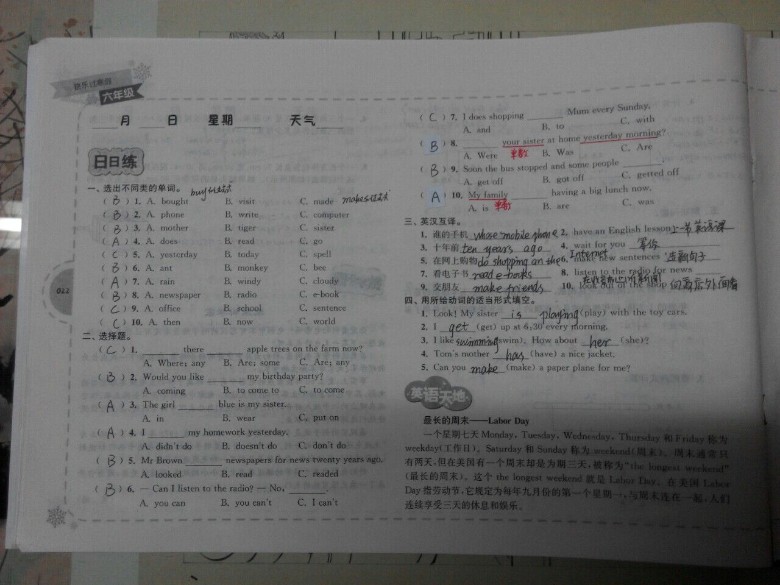 快乐过寒假
六年级
月 日 星期 天气
日日练
一、选出不同类的单词。
( B ) 1. A. bought B. visit C. made
( B ) 2. A. phone B. write C. computer
( B ) 3. A. mother B. tiger C. sister
( A ) 4. A. does B. read C. go
( C ) 5. A. yesterday B. today C. spell
( C ) 6. A. ant B. monkey C. bee
( A ) 7. A. rain B. windy C. cloudy
( B ) 8. A. newspaper B. radio C. e-book
( C ) 9. A. office B. school C. sentence
( C ) 10. A. then B. now C. world
二、选择题。
( C ) 1. ____ there ____ apple trees on the farm now?
A. Where; any B. Are; some C. Are; any
( B ) 2. Would you like ____ my birthday party?
A. coming B. to come to C. to come
( A ) 3. The girl ____ blue is my sister.
A. in B. wear C. put on
( A ) 4. I ____ my homework yesterday.
A. didn't do B. doesn't do C. don't do
( B ) 5. Mr Brown ____ newspapers for news twenty years ago.
A. looked B. read C. readed
( B ) 6. — Can I listen to the radio? — No, ____
A. you can B. you can't C. I can't
022
( C ) 7. I does shopping ____ Mum every Sunday.
A. and B. to C. with
( B ) 8. ____ your sister at home yesterday morning?
A. Were 单数 B. Was C. Are
( B ) 9. Soon the bus stopped and some people ____.
A. get off B. got off C. getted off
( A ) 10. My family ____ having a big lunch now.
A. is B. are C. was
三、英汉互译。
1. 谁的手机 whose mobile phone 2. have an English lesson 上一节英语课
3. 十年前 ten years ago 4. wait for you 等你
5. 在网上购物 do shopping on the Internet new sentences 造新句子
7. 看电子书 read e-books 8. listen to the radio for news
9. 交朋友 make friends 10. look out of the shop 向商店外面看
四、用所给动词的适当形式填空。
1. Look! My sister is playing (play) with the toy cars.
2. I get (get) up at 6:30 every morning.
3. I like swimming (swim). How about her (she)?
4. Tom's mother has (have) a nice jacket.
5. Can you make (make) a paper plane for me?
英语天地
最长的周末——Labor Day
一个星期七天 Monday, Tuesday, Wednesday, Thursday 和 Friday 称为
weekday(工作日)，Saturday 和 Sunday 称为 weekend(周末)。周末通常只
有两天，但在美国有一个周末却是为期三天，被称为"the longest weekend"
(最长的周末)。这个 the longest weekend 就是 Labor Day。在美国 Labor
Day 指劳动节，它规定为每年九月份的第一个星期一，与周末连在一起，人们
连续享受三天的休息和娱乐。